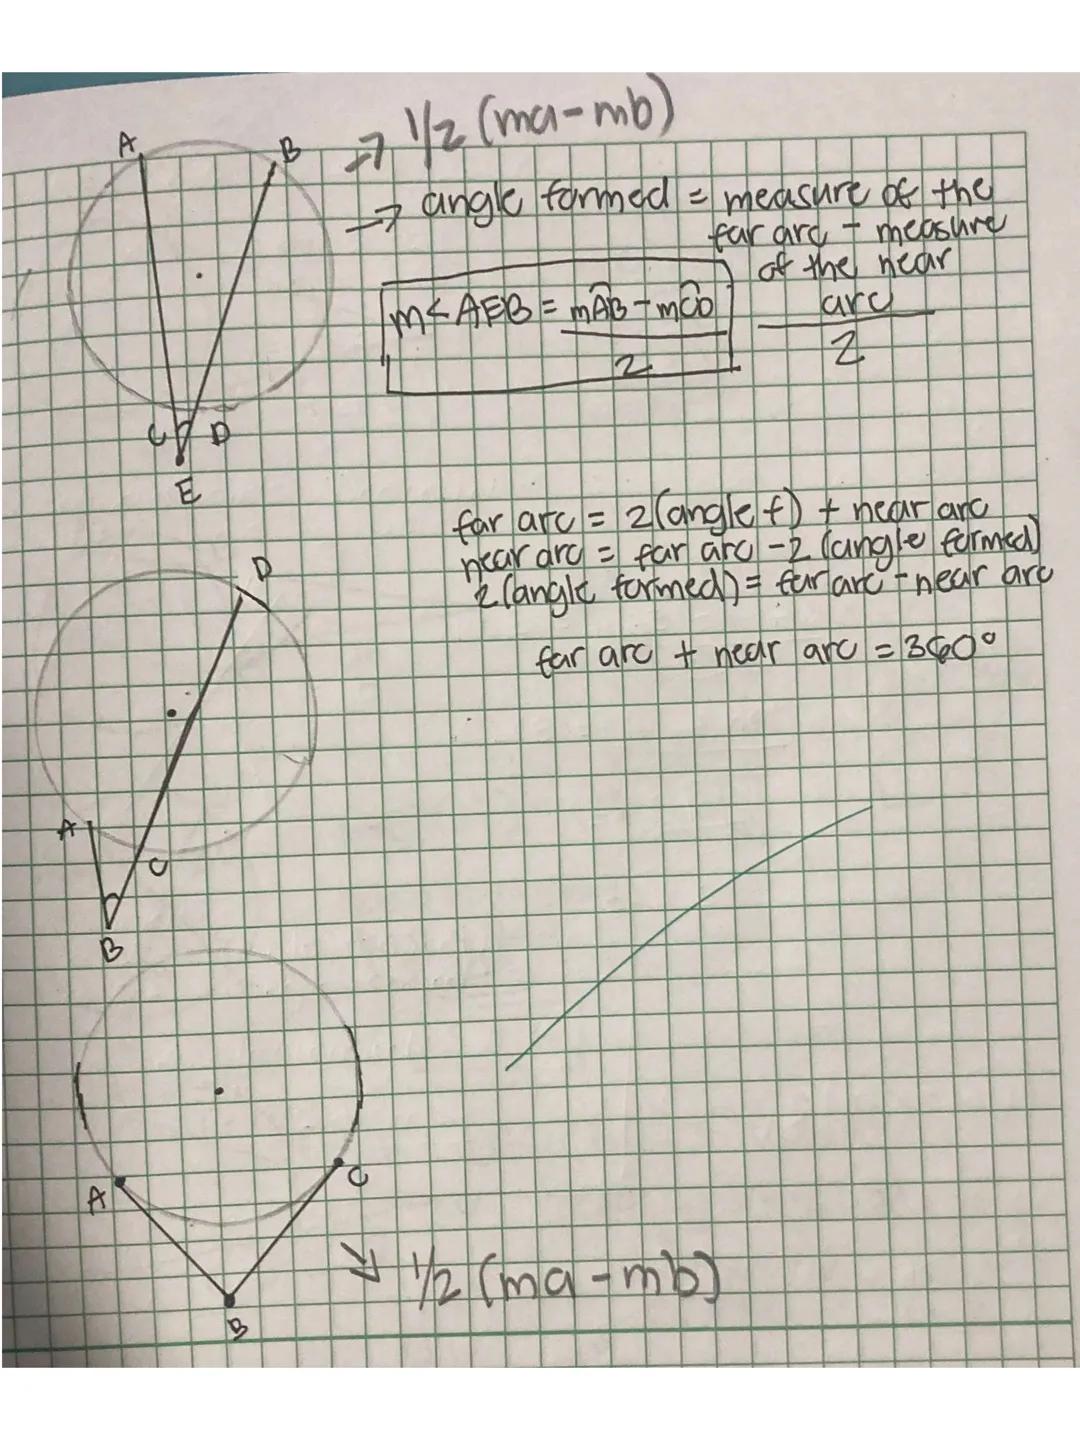 A
B
→ 1/2 (ma-mb)
→ angle formed = measure of the
far arc - measure
of the near
arc
2
m<AEB = mAB - mCD
2
C D
E
far arc = 2(angle f) + near arc
near arc = far arc -2 (angle formed)
2(angle formed) = far arc - near arc
far arc + near arc = 360°
D
A
C
B
A
C
B
↘ 1/2 (ma-mb)